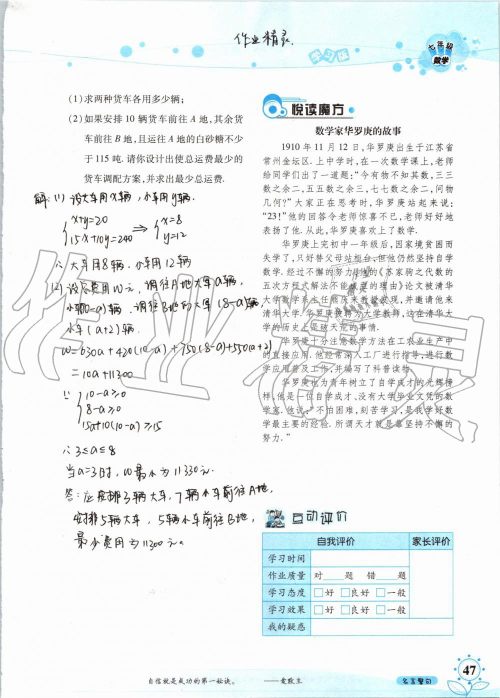 作业精灵
学习版
七年级
数学
(1)求两种货车各用多少辆;
(2)如果安排 10 辆货车前往 A 地,其余货
车前往 B 地,且运往 A 地的白砂糖不少
于 115 吨. 请你设计出使总运费最少的
货车调配方案,并求出最少总运费.
解:(1)设大车用x辆,小车用y辆.
{x+y=20
15x+10y=240 ⇒ {x=8
y=12
∴大车用8辆,小车用12辆
(2)设总费用w元,调往A地大车a辆,
小车(10-a)辆,调往B地的大车(8-a)辆,
小车(a+2)辆
w=630a+420(10-a)+750(8-a)+550(a+2)
=10a+11300
∵{10-a≥0
8-a≥0
15a+10(10-a)≥115
∴3≤a≤8
当a=3时,w最小为11330元.
答:应安排3辆大车,7辆小车前往A地,
安排5辆大车,5辆小车前往B地,
最少费用为11300元。
悦读魔方
数学家华罗庚的故事
1910 年 11 月 12 日,华罗庚出生于江苏省
常州金坛区.上中学时,在一次数学课上,老师
给同学们出了一道题:“今有物不知其数,三三
数之余二,五五数之余三,七七数之余二,问物
几何?”大家正在思考时,华罗庚站起来说:
“23!”他的回答令老师惊喜不已,老师好好地
表扬了他.从此,华罗庚喜欢上了数学.
华罗庚上完初中一年级后,因家境贫困而
失学了,只好替父母站柜台,但他仍然坚持自学
数学.经过不懈的努力,他的《苏家驹之代数的
五次方程式解法不能成立的理由》论文被清华
大学数学系主任熊庆来教授发现,并邀请他来
清华大学;华罗庚被聘为大学教师,这在清华大
学的历史上是破天荒的事情.
华罗庚十分注意数学方法在工农业生产中
的直接应用.他经常深入工厂进行指导,进行数
学应用普及工作,并编写了科普读物.
华罗庚也为青年树立了自学成才的光辉榜
样,他是一位自学成才、没有大学毕业文凭的数
学家.他说:“不怕困难,刻苦学习,是我学好数
学最主要的经验.所谓天才就是靠坚持不懈的
努力.”
互动评价
自我评价 家长评价
学习时间
作业质量 对 题 错 题
学习态度 □好 □良好 □一般
学习效果 □好 □良好 □一般
我的疑惑
自信就是成功的第一秘诀。 ——爱默生
名言警句
47
作业精灵